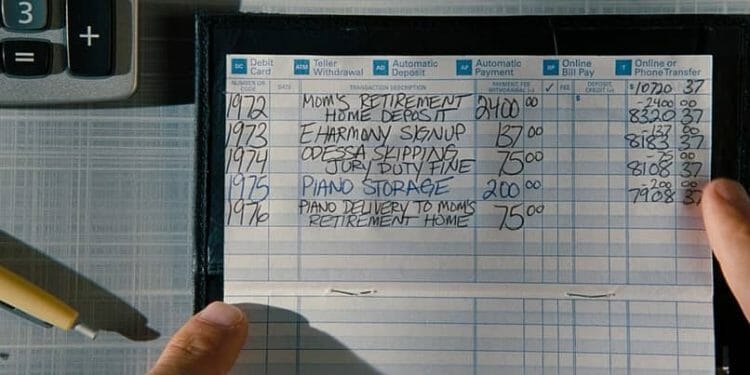 3
=
+
DC Debit Card
ATM Teller Withdrawal
AD Automatic Deposit
AP Automatic Payment
BP Online Bill Pay
T Online or Phone Transfer
NUMBER OR CODE DATE TRANSACTION DESCRIPTION PAYMENT, FEE WITHDRAWAL (-) ✓ FEE DEPOSIT, CREDIT (+) $ 10720 37
1972 MOM'S RETIREMENT 2400 00 $ -2400 00
HOME DEPOSIT 8320 37
1973 EHARMONY SIGNUP 137 00 -137 00
8183 37
1974 ODESSA SKIPPING 75 00 -75 00
JURY DUTY FINE 8108 37
1975 PIANO STORAGE 200 00 -200 00
7908 37
1976 PIANO DELIVERY TO MOM'S 75 00
RETIREMENT HOME